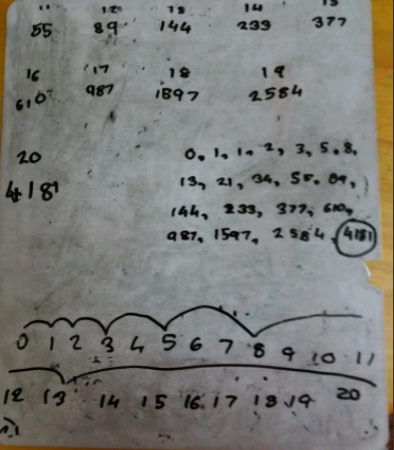 11 12 13 14 15
55 89 144 233 377
16 17 18 19
610 987 1597 2584
20
4181
0, 1, 1, 2, 3, 5, 8,
13, 21, 34, 55, 89,
144, 233, 377, 610,
987, 1597, 2584, 4181
0 1 2 3 4 5 6 7 8 9 10 11
12 13 14 15 16 17 18 19 20